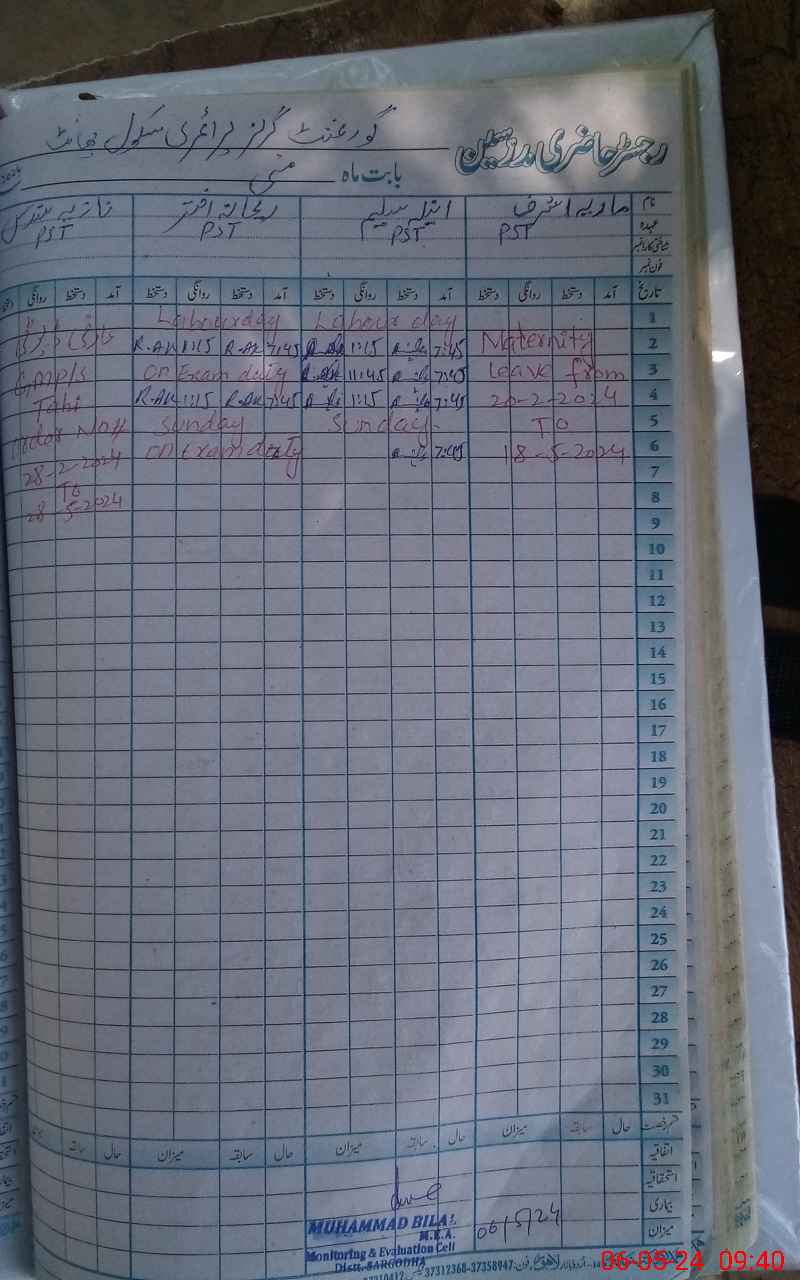 رجسٹر حاضری مدرسین گورنمنٹ گرلز پرائمری سکول
بابت ماہ مئی
نام ماریہ اشرف انیلہ سلیم ریحانہ اختر نازیہ
عہدہ PST PST PST PST
شناختی کارڈ نمبر
فون نمبر
تاریخ آمد دستخط روانگی دستخط آمد دستخط روانگی دستخط آمد دستخط روانگی دستخط آمد دستخط روانگی
1 Labour day Labour day
2 Maternity 7:45 1:15 7:45 R.AK 1:15 R.AK
3 Leave from 7:45 11:45 On Exam duty
4 20-2-2024 7:45 1:15 7:45 R.AK 1:15 R.AK
5 To Sunday Sunday
6 18-5-2024 7:45 On Exam duty
28-2-2024
7
To
8
28-5-2024
9
10
11
12
13
14
15
16
17
18
19
20
21
22
23
24
25
26
27
28
29
30
31
قسم رخصت حال سابقہ میزان حال سابقہ میزان حال سابقہ میزان حال سابقہ
اتفاقیہ
استحقاقیہ
بیماری
میزان
MUHAMMAD BILAL
M.E.A.
Monitoring & Evaluation Cell
Distt. SARGODHA
06/5/24
فون: 37358947-37312368
06-05-24 09:40